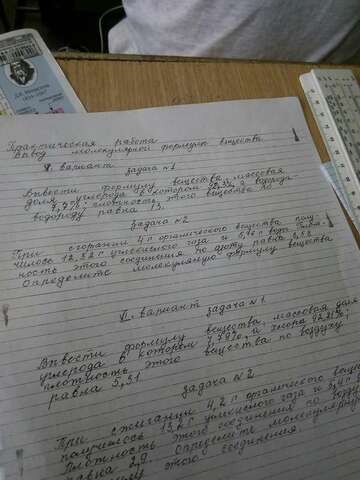 Д.И. Менделеев
1834-1907
Практическая работа
Вывод молекулярной формулы вещества
V вариант
задача №1
Вывести формулу вещества, массовая
доля углерода в котором 92,3%, а водорода
7,7%, плотность этого вещества по
водороду равна 13.
задача №2
При сгорании 4 г органического вещества полу-
чилось 12,32 г углекислого газа и
ность этого соединения по азоту равна
Определите молекулярную формулу вещества
VI вариант задача №1
Вывести формулу вещества, массовая доля
углерода в котором 7,79%, а хлора 92,21%;
плотность этого вещества по воздуху
равна 5,31
задача №2
При сжигании 4,2 г органического вещес
получилось 13,2 г углекислого газа и 5,4 г
Плотность этого соединения по возду
равна 2,9. Определите молекуляр
мулу этого соединения.